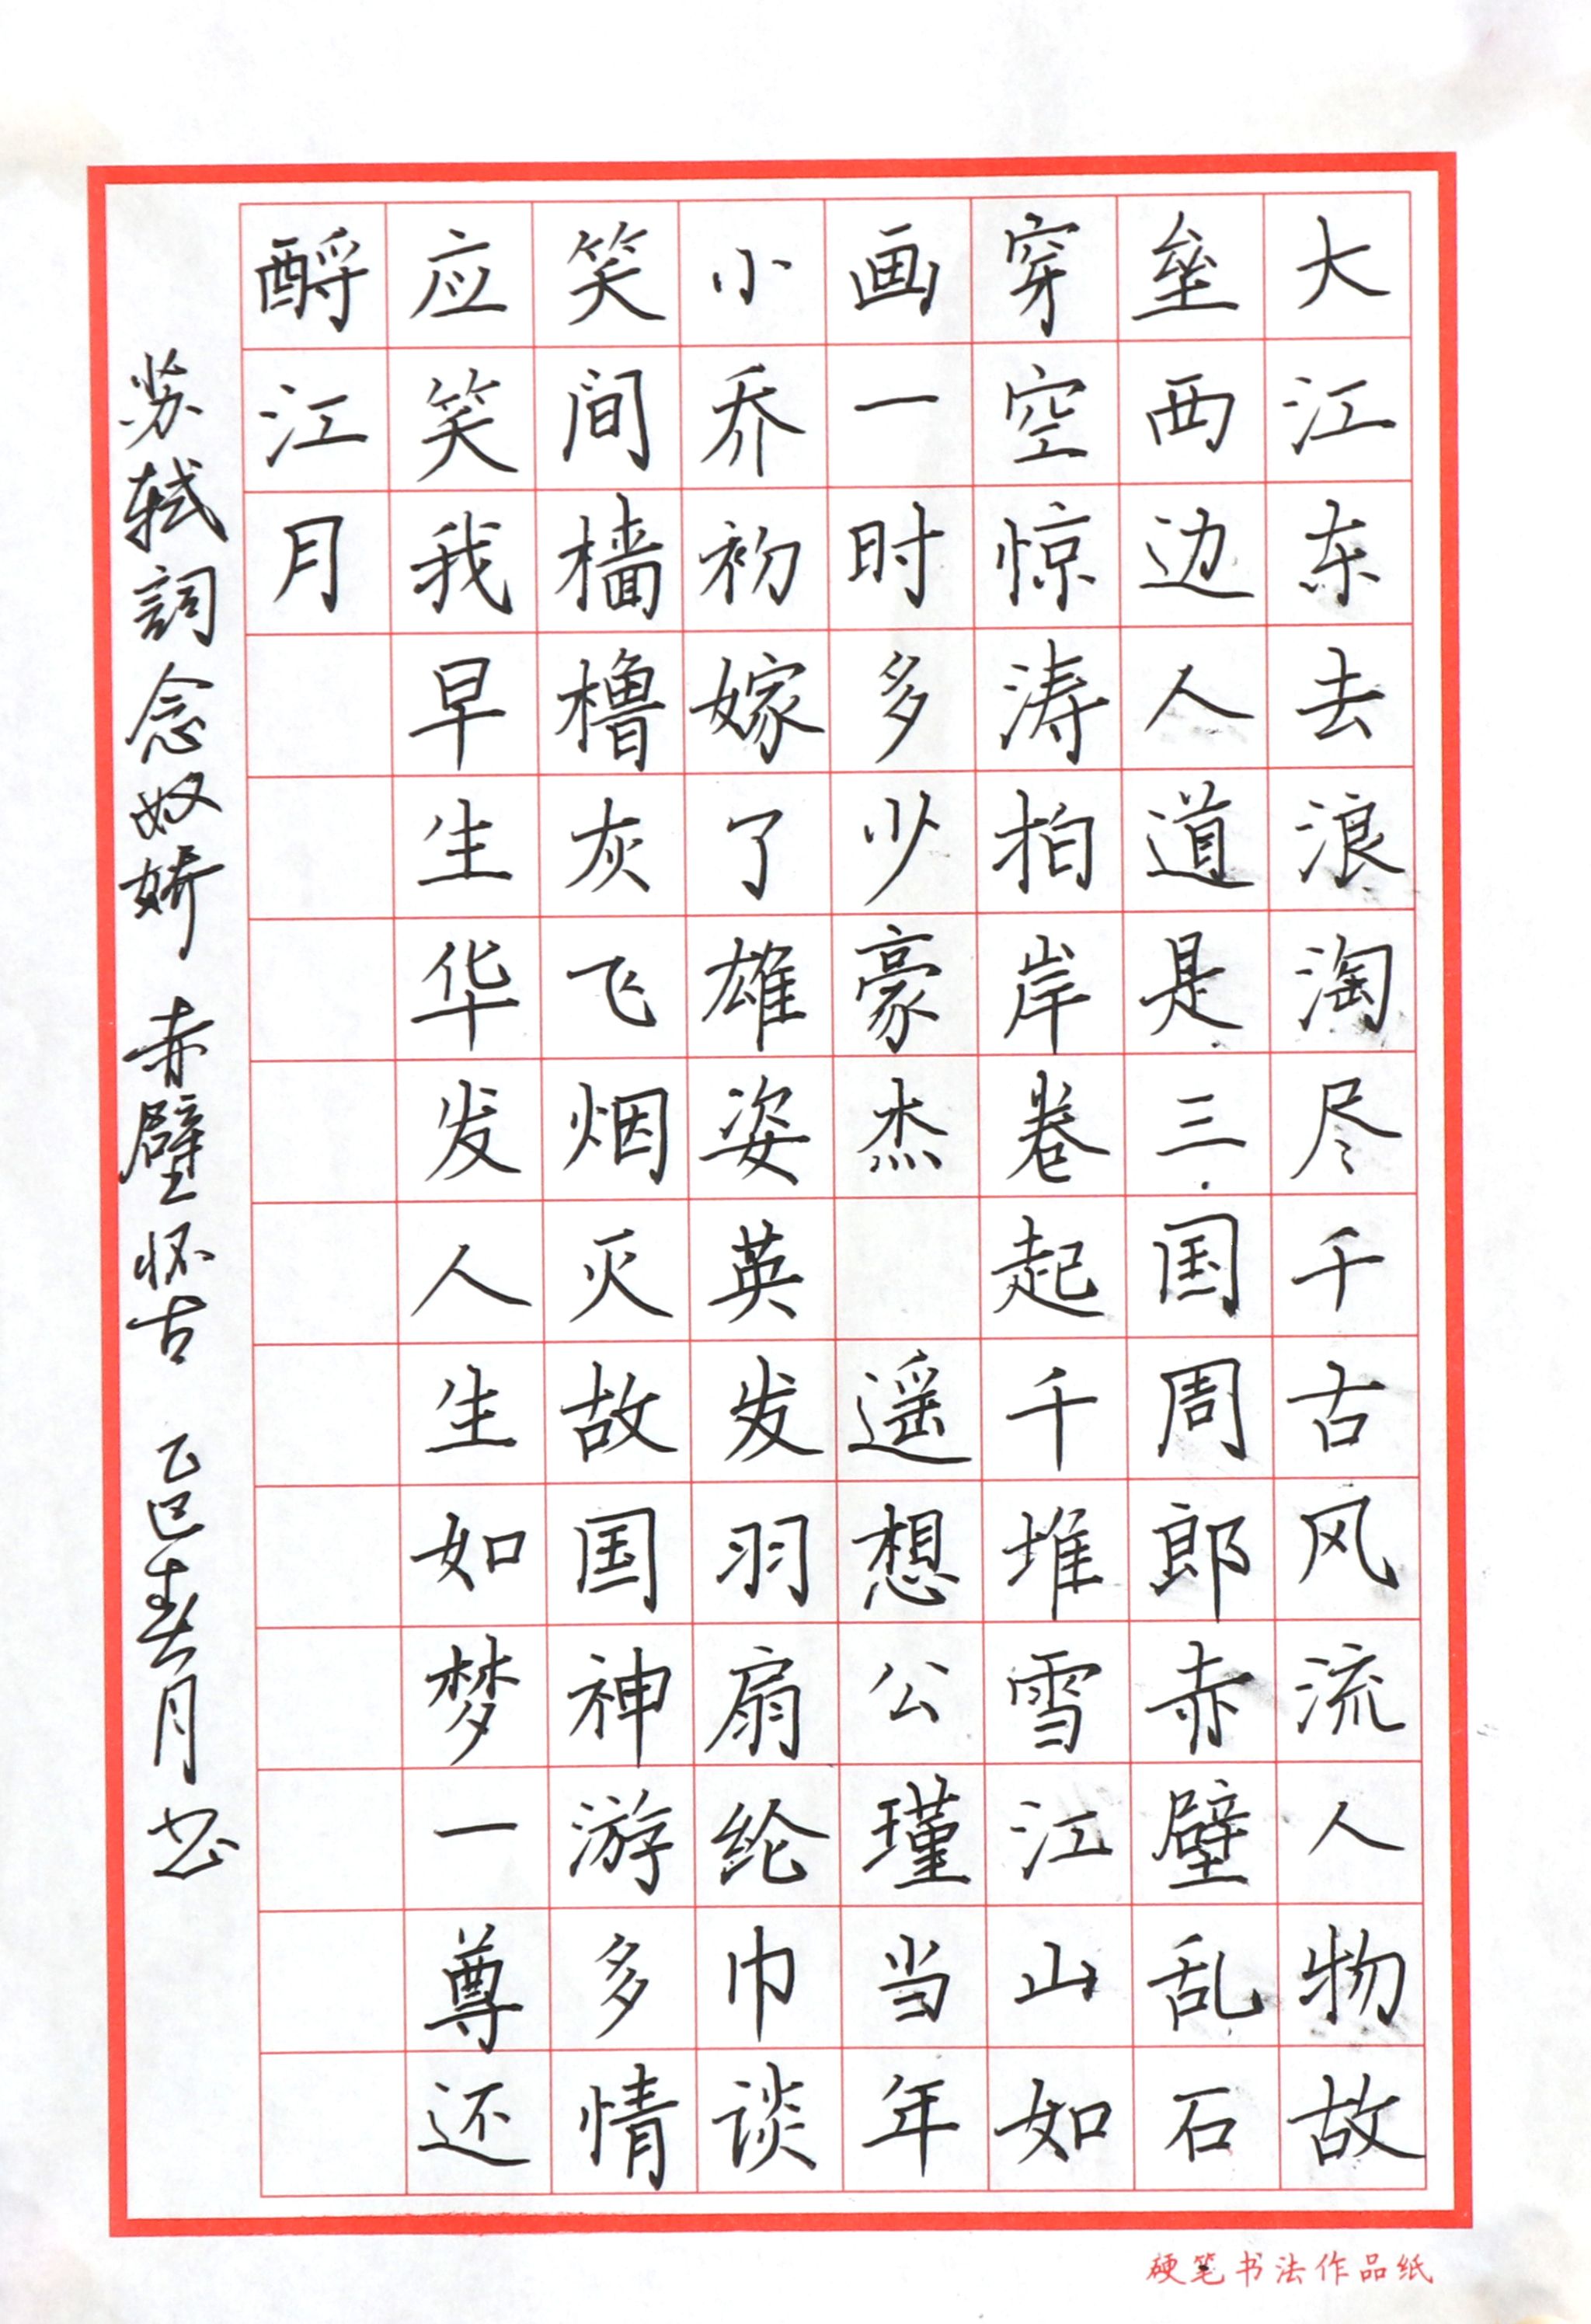 大江东去浪淘尽千古风流人物故
垒西边人道是三国周郎赤壁乱石
穿空惊涛拍岸卷起千堆雪江山如
画一时多少豪杰 遥想公瑾当年
小乔初嫁了雄姿英发羽扇纶巾谈
笑间樯橹灰飞烟灭故国神游多情
应笑我早生华发人生如梦一尊还
酹江月
苏轼詞念奴娇 赤壁怀古 乙巳春月书
硬笔书法作品纸